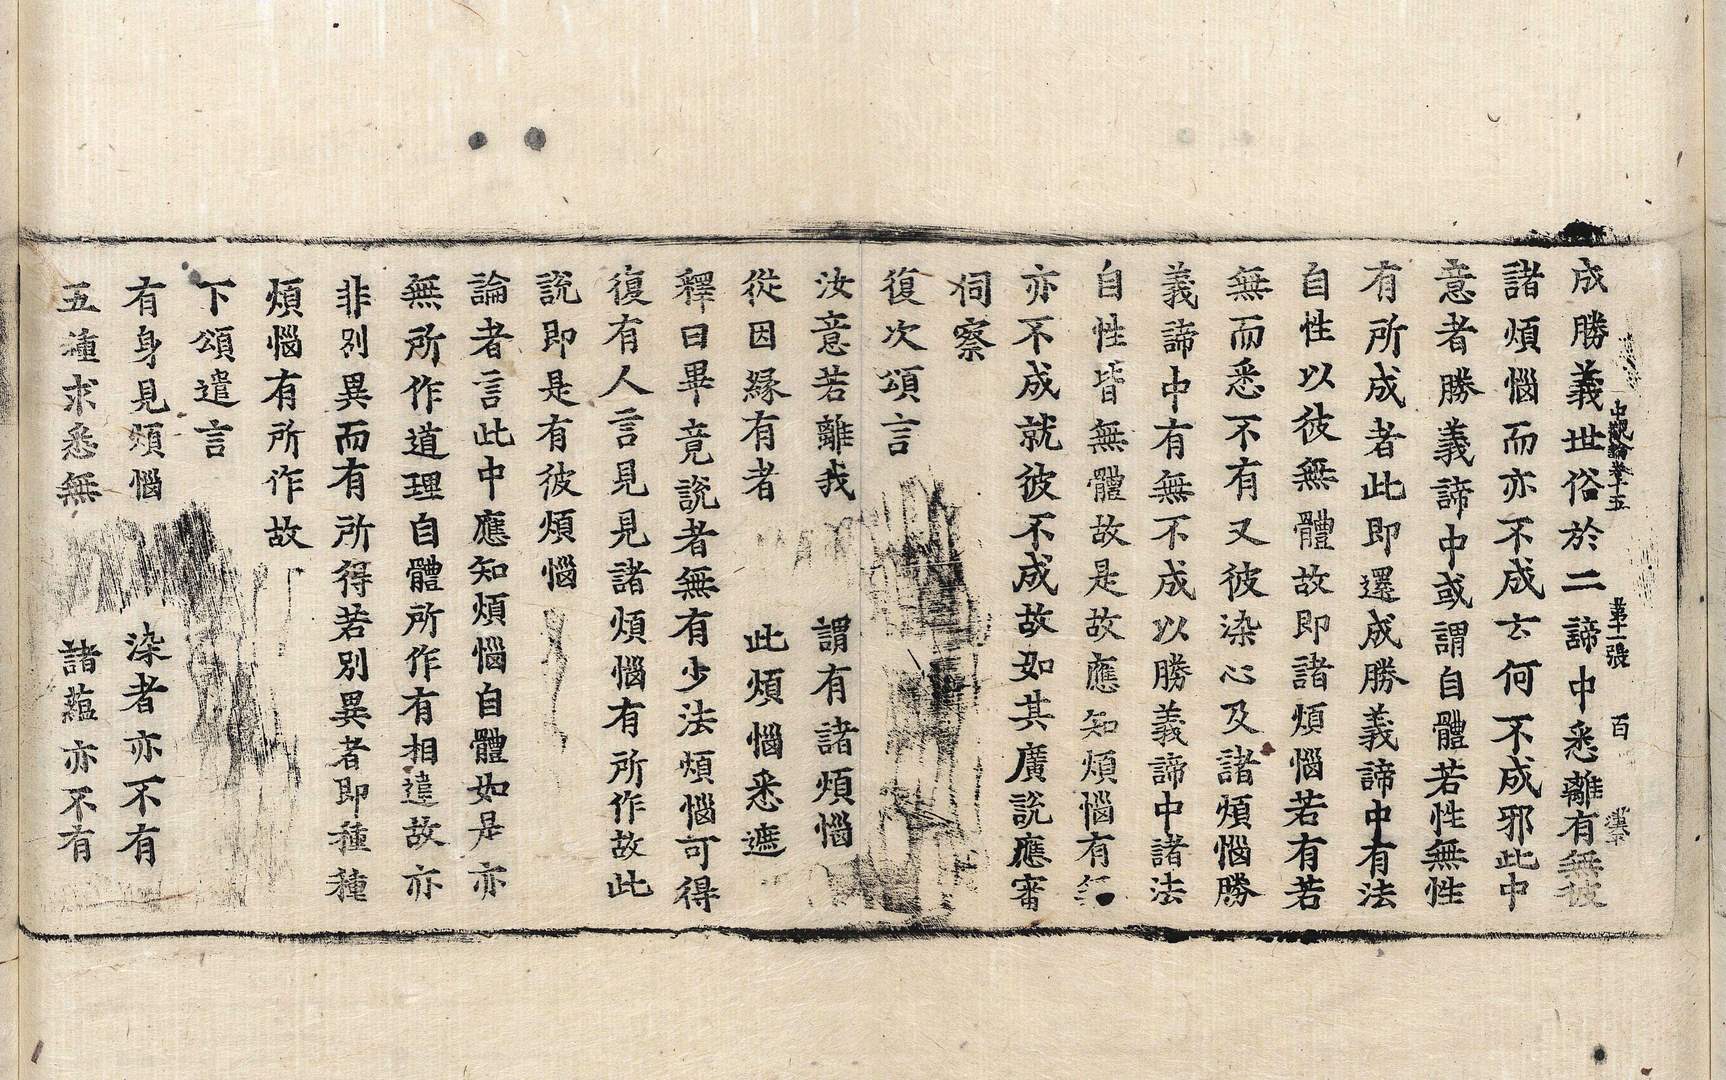 成勝義世俗於二諦中悉離有無彼
中觀論卷十五 第十一張 百
諸煩惱而亦不成云何不成邪此中
意者勝義諦中或謂自體若性無性
有所成者此即還成勝義諦中有法
自性以彼無體故即諸煩惱若有若
無而悉不有又彼染心及諸煩惱勝
義諦中有無不成以勝義諦中諸法
自性皆無體故是故應知煩惱有
亦不成就彼不成故如其廣說應審
伺察
復次頌言
汝意若離我 謂有諸煩惱
從因緣有者 此煩惱悉遮
釋曰畢竟說者無有少法煩惱可得
復有人言見見諸煩惱有所作故此
說即是有彼煩惱
論者言此中應知煩惱自體如是亦
無所作道理自體所作有相違故亦
非別異而有所得若別異者即種種
煩惱有所作故
下頌遣言
有身見煩惱 染者亦不有
五種求悉無 諸蘊亦不有